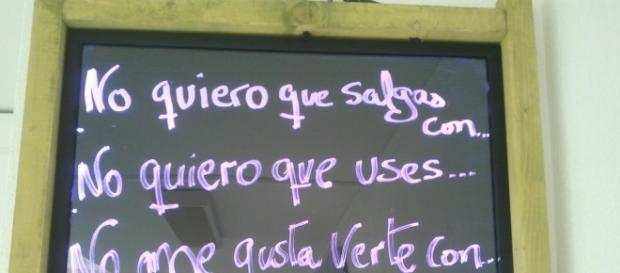 No quiero que salgas
con...
No quiero que uses...
No me gusta verte con...